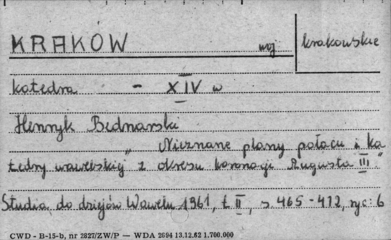 KRAKÓW woj krakowskie
katedra - XIV w
Henryk Bednarski
" Nieznane plany pałacu i ka
tedry wawelskiej z okresu koronacji Augusta III"
Studia do dziejów Wawelu 1961, t. II, s 465-472, ryc: 6
CWD - B-15-b, nr 2827/ZW/P — WDA 2694 13.12.62 1.700.000